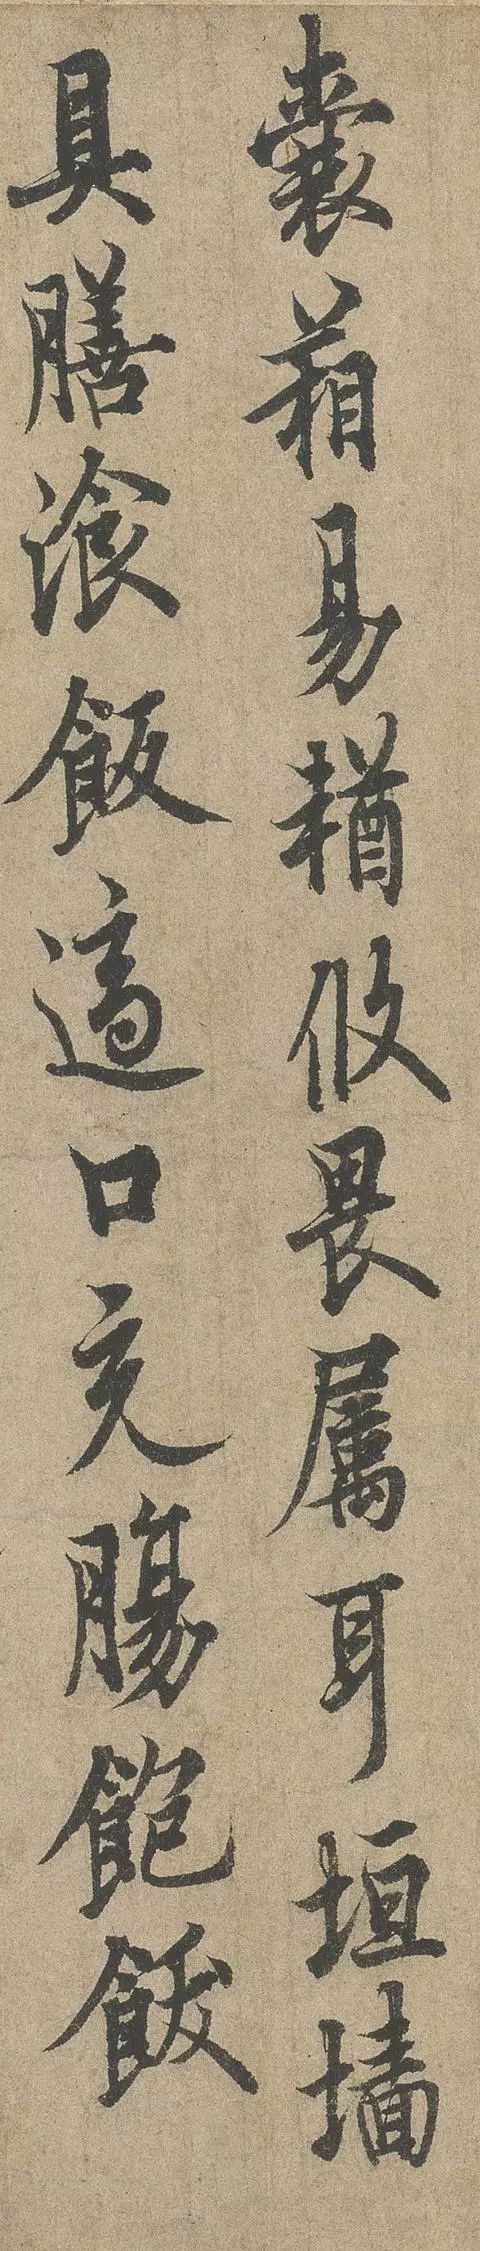 囊葙易輶攸畏属耳垣墙
具膳飡飯適口充腸飽飫